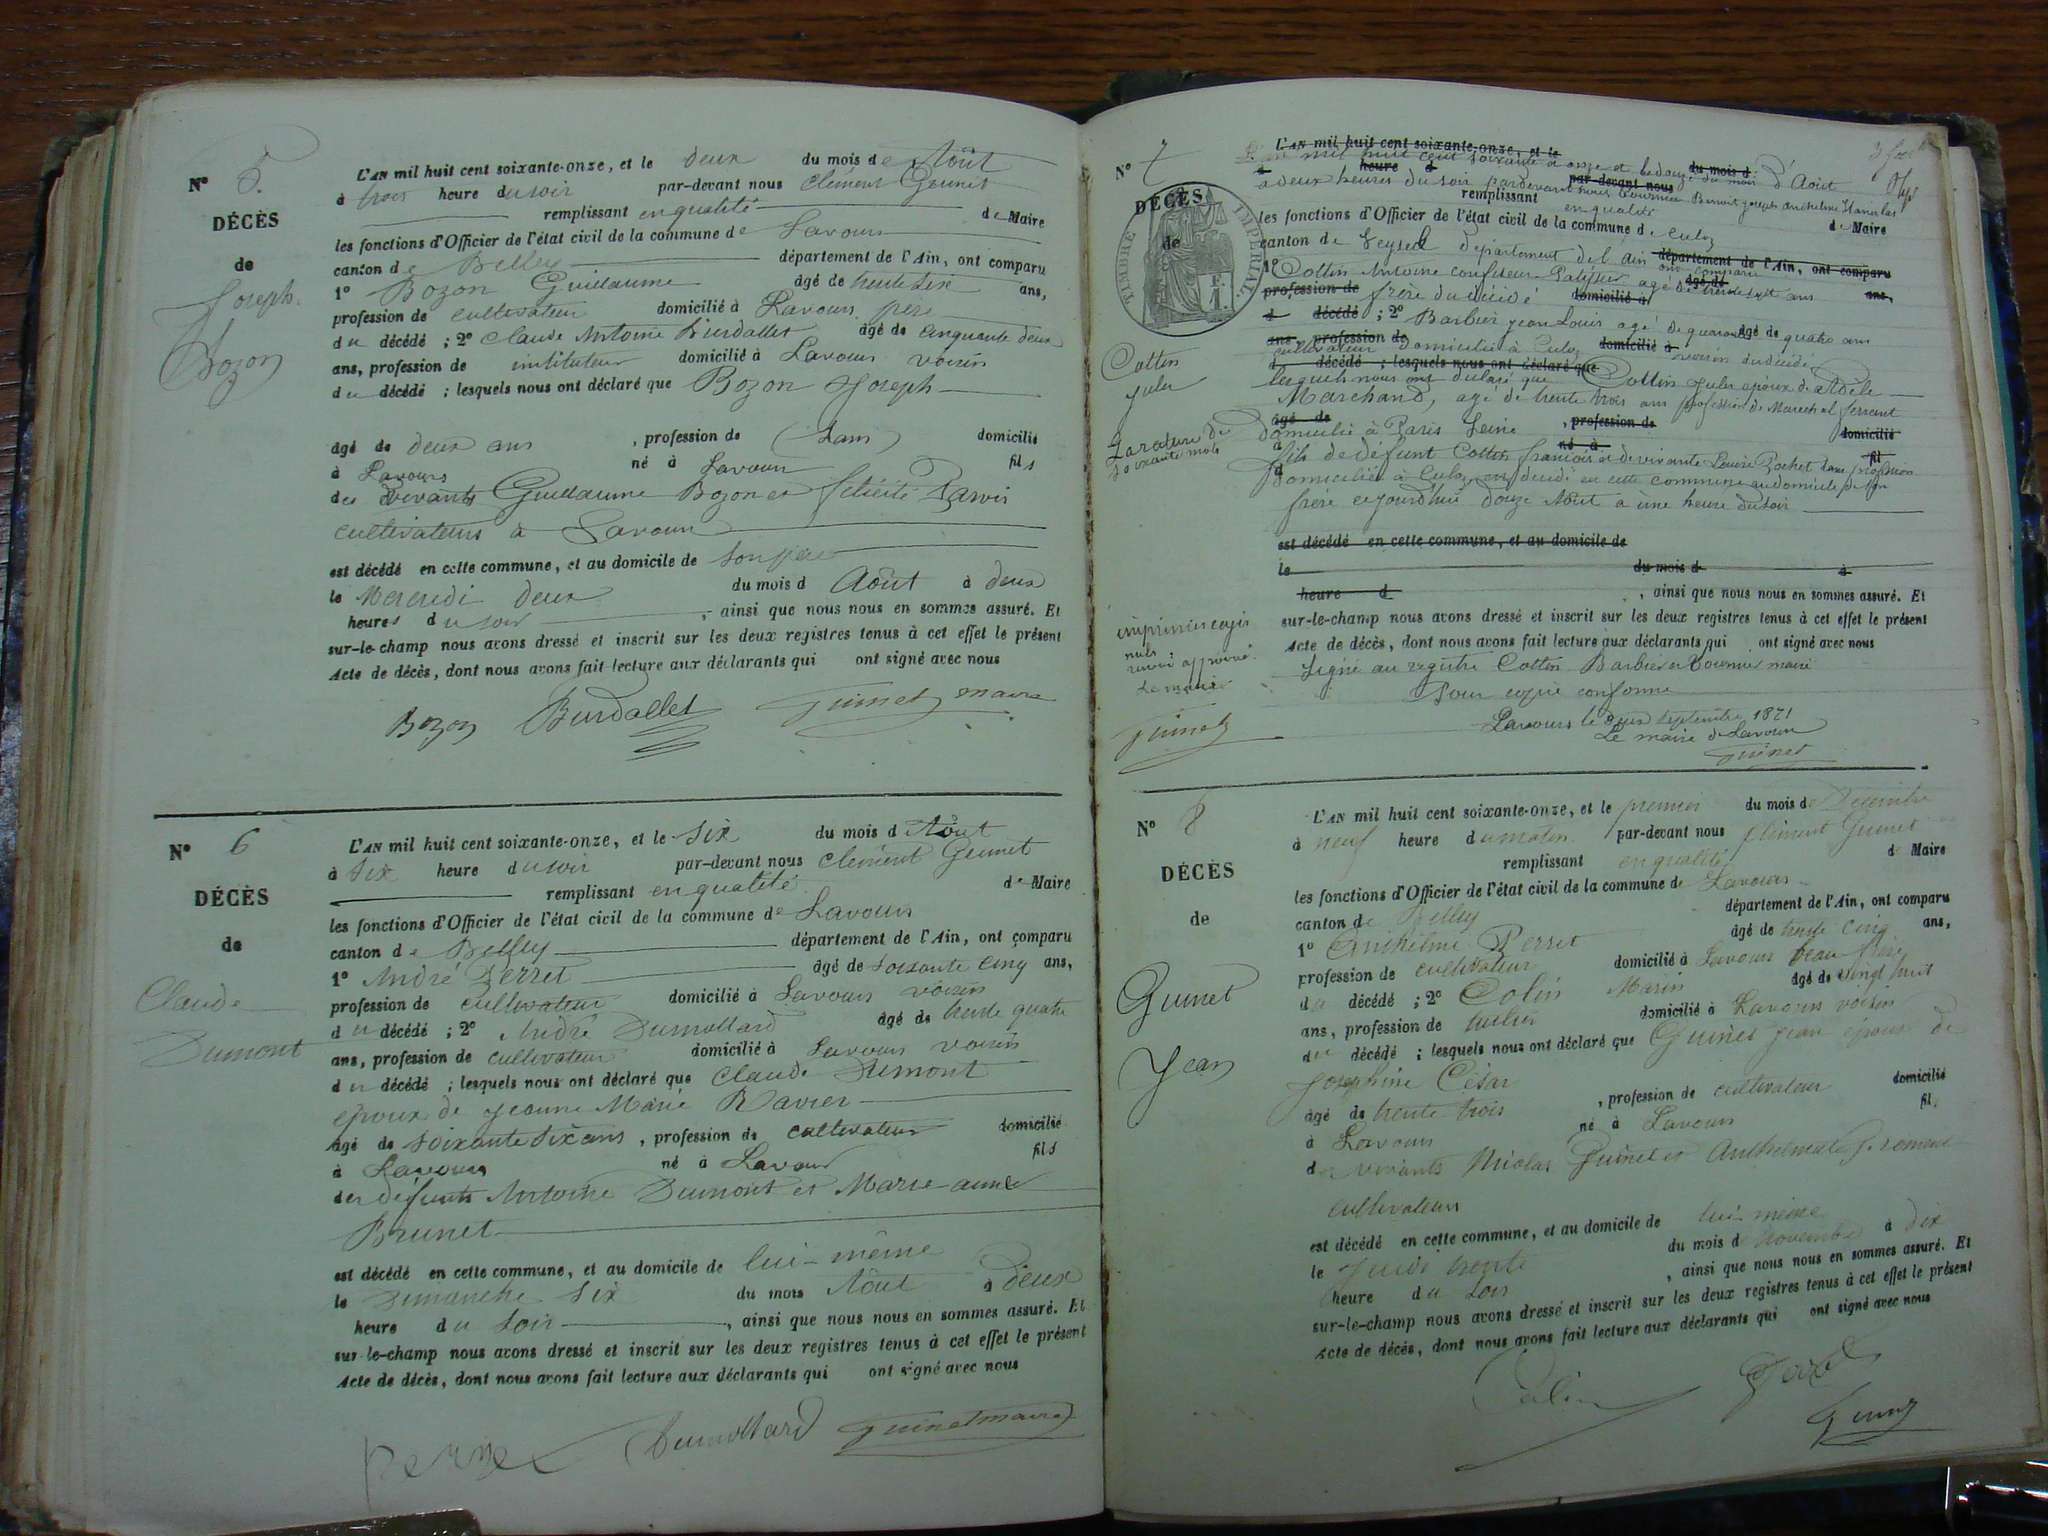 N° 5.
DÉCÈS
de
Joseph
Bozon
L'AN mil huit cent soixante-onze, et le deux du mois de Août
à trois heure du soir par-devant nous Clément Guinet
remplissant en qualité de Maire
les fonctions d'Officier de l'état civil de la commune de Lavours
canton de Belley département de l'Ain, ont comparu
1° Bozon Guillaume âgé de trente six ans,
profession de cultivateur domicilié à Lavours père
du décédé ; 2° Claude Antoine Burdallet âgé de cinquante deux
ans, profession de instituteur domicilié à Lavours voisin
du décédé ; lesquels nous ont déclaré que Bozon Joseph
âgé de deux ans , profession de (sans) domicilié
à Lavours né à Lavours fils
des vivants Guillaume Bozon et félicité
cultivateurs à Lavours
est décédé en cette commune, et au domicile de son père
le Mercredi deux du mois d Août à deux
heures du soir , ainsi que nous nous en sommes assuré. Et
sur-le-champ nous avons dressé et inscrit sur les deux registres tenus à cet effet le présent
Acte de décès, dont nous avons fait lecture aux déclarants qui ont signé avec nous
Bozon Burdallet Guinet maire
N° 6
DÉCÈS
de
Claude
Dumont
L'AN mil huit cent soixante-onze, et le six du mois d Août
à six heure du soir par-devant nous Clément Guinet
remplissant en qualité de Maire
les fonctions d'Officier de l'état civil de la commune de Lavours
canton de Belley département de l'Ain, ont comparu
1° André Perret âgé de soixante cinq ans,
profession de cultivateur domicilié à Lavours voisin
du décédé ; 2° André Dumollard âgé de trente quatre
ans, profession de cultivateur domicilié à Lavours voisin
du décédé ; lesquels nous ont déclaré que Claude Dumont
époux de Jeanne Marie Ravier
âgé de soixante six ans , profession de cultivateur domicilié
à Lavours né à Lavours fils
des défunts Antoine Dumont et Marie anne
Brunet
est décédé en cette commune, et au domicile de lui-même
le Dimanche six du mois Août à deux
heure du soir , ainsi que nous nous en sommes assuré. Et
sur-le-champ nous avons dressé et inscrit sur les deux registres tenus à cet effet le présent
Acte de décès, dont nous avons fait lecture aux déclarants qui ont signé avec nous
Perret Dumollard Guinet maire
N° 7
DÉCÈS
de
TIMBRE IMPÉRIAL
Cottin
Jules
La rature de
soixante mots
imprimés
nuls
approuvé
Le maire
Guinet
L'AN mil huit cent soixante-onze, et le du mois d
L'an mil huit cent soixante onze et le douze du mois d'Août
à heure d par-devant nous
à deux heures du soir pardevant nous Tournier Benoit Joseph Anthelme Stanislas
remplissant en qualité de Maire
les fonctions d'Officier de l'état civil de la commune de Culoz
canton de Seyssel département de l'ain département de l'Ain, ont comparu
ont comparu
1° Cottin Antoine confiseur Patissier âgé de trente sept ans âgé de ans,
profession de frère du décédé domicilié à
d décédé ; 2° Barbier Jean Louis agé de quarante quatre ans âgé de
ans, profession de domicilié à
cultivateur domicilié à Culoz voisin du décédé
d décédé ; lesquels nous ont déclaré que
lesquels nous ont déclaré que Cottin Jules époux de Adèle
Marchand, agé de trente trois ans profession de Marechal ferrant
âgé de , profession de domicilié
domicilié à Paris Seine
à né à fil
fils de défunt Cottin françois et de vivante Louise Rochet sans profession
d
domiciliée à Culoz, est décédé en cette commune au domicile de son
frère cejourd'hui douze Août à une heure du soir
est décédé en cette commune, et au domicile de
le du mois d à
heure d , ainsi que nous nous en sommes assuré. Et
sur-le-champ nous avons dressé et inscrit sur les deux registres tenus à cet effet le présent
Acte de décès, dont nous avons fait lecture aux déclarants qui ont signé avec nous
Signé au registre Cottin Barbier et Tournier maire
Pour copie conforme
Lavours le deux septembre 1871
Le maire de Lavours
Guinet
N° 8
DÉCÈS
de
Guinet
Jean
L'AN mil huit cent soixante-onze, et le premier du mois de Décembre
à neuf heure du matin par-devant nous Clément Guinet
remplissant en qualité de Maire
les fonctions d'Officier de l'état civil de la commune de Lavours
canton de Belley département de l'Ain, ont comparu
1° Anthelme Perret âgé de trente cinq ans,
profession de cultivateur domicilié à Lavours beau frère
du décédé ; 2° Colin Marin âgé de vingt huit
ans, profession de domicilié à Lavours voisin
du décédé ; lesquels nous ont déclaré que Guinet Jean époux de
Josephine César
âgé de trente trois , profession de cultivateur domicilié
à Lavours né à Lavours fils
des vivants Nicolas Guinet et
cultivateurs
est décédé en cette commune, et au domicile de lui-même
le Jeudi trente du mois de novembre à dix
heure du soir , ainsi que nous nous en sommes assuré. Et
sur-le-champ nous avons dressé et inscrit sur les deux registres tenus à cet effet le présent
Acte de décès, dont nous avons fait lecture aux déclarants qui ont signé avec nous
Colin